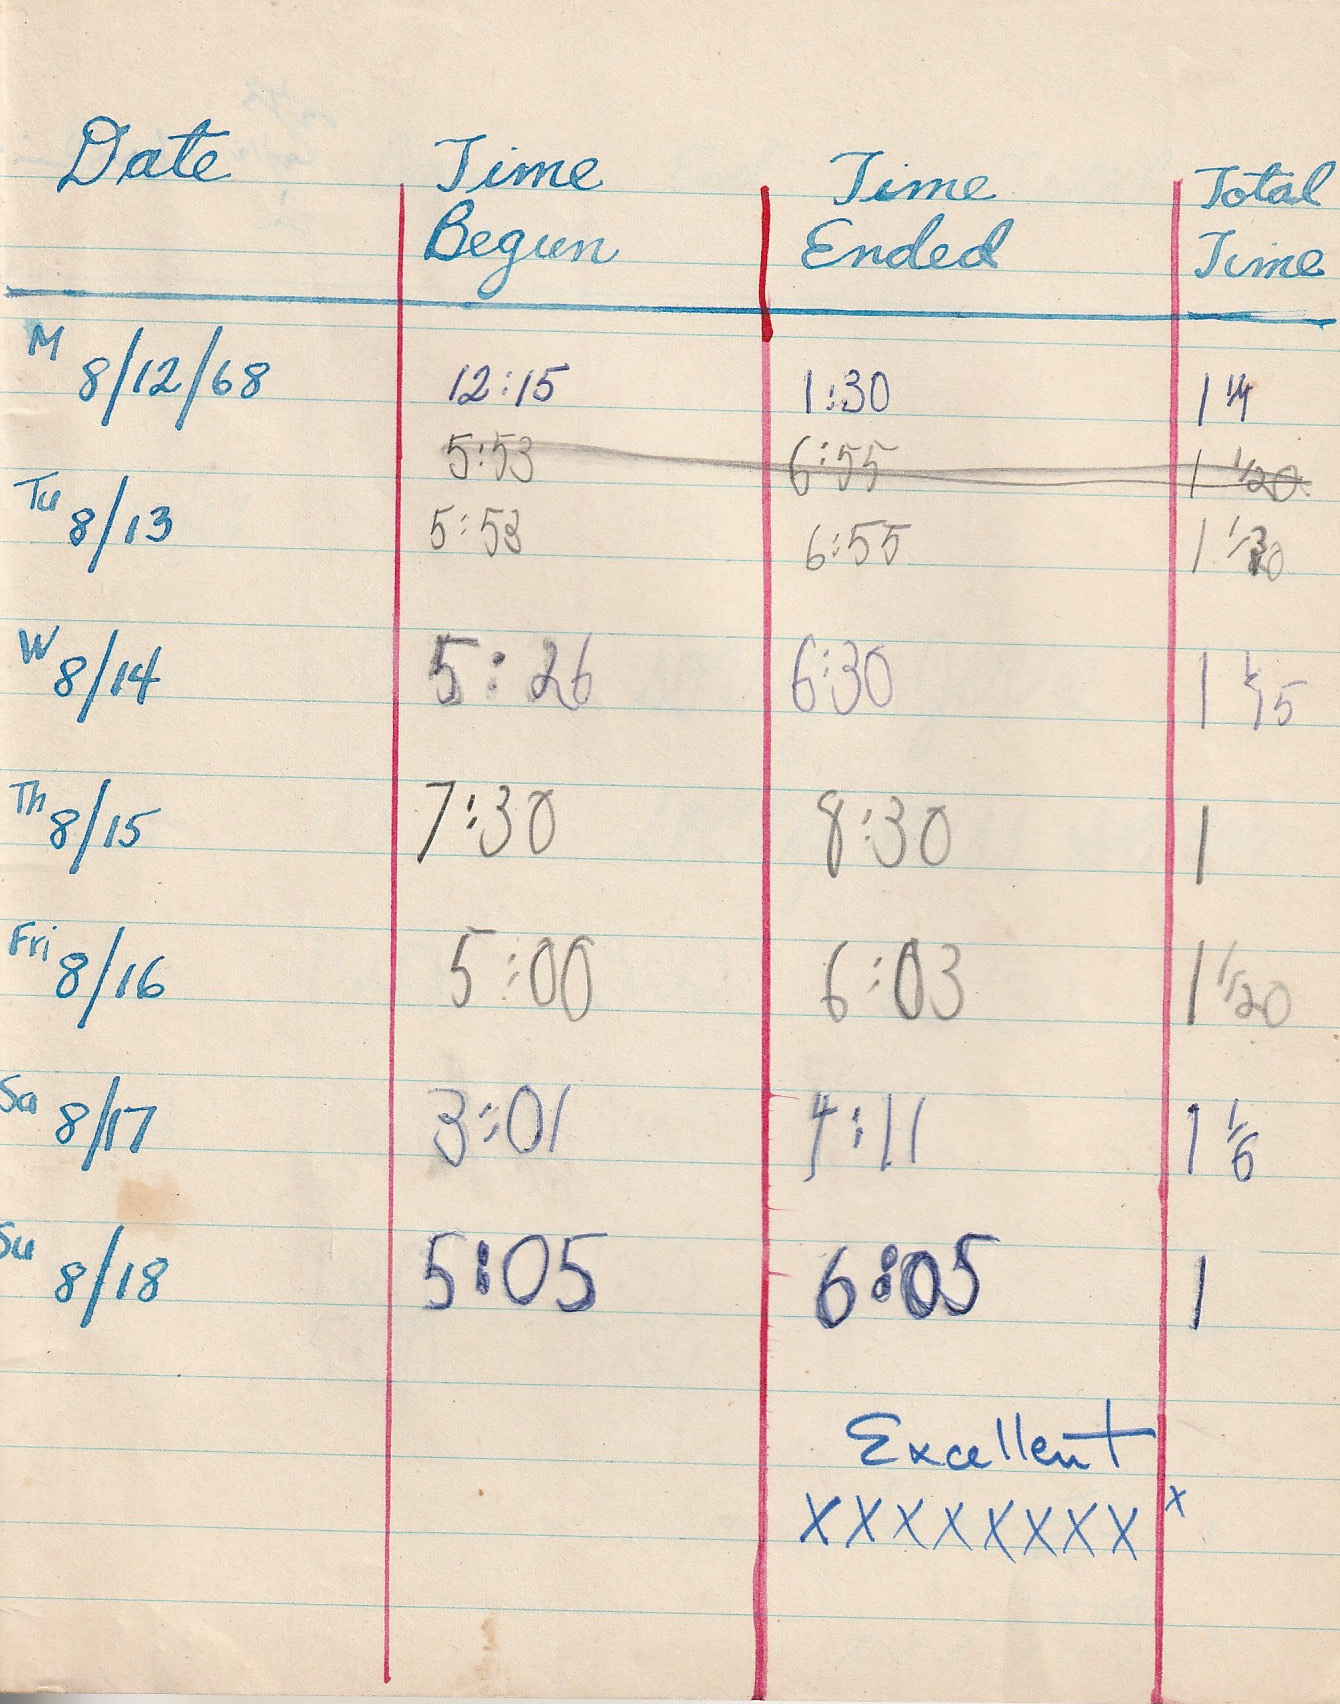 Date Time Time Total
Begun Ended Time
M 8/12/68 12:15 1:30 1 1/4
5:53 6:55 1 1/20
Tu 8/13 5:53 6:55 1 1/30
W 8/14 5:26 6:30 1 1/15
Th 8/15 7:30 8:30 1
Fri 8/16 5:00 6:03 1 1/20
Sa 8/17 3:01 4:11 1 1/6
Su 8/18 5:05 6:05 1
Excellent
XXXXXXXX x